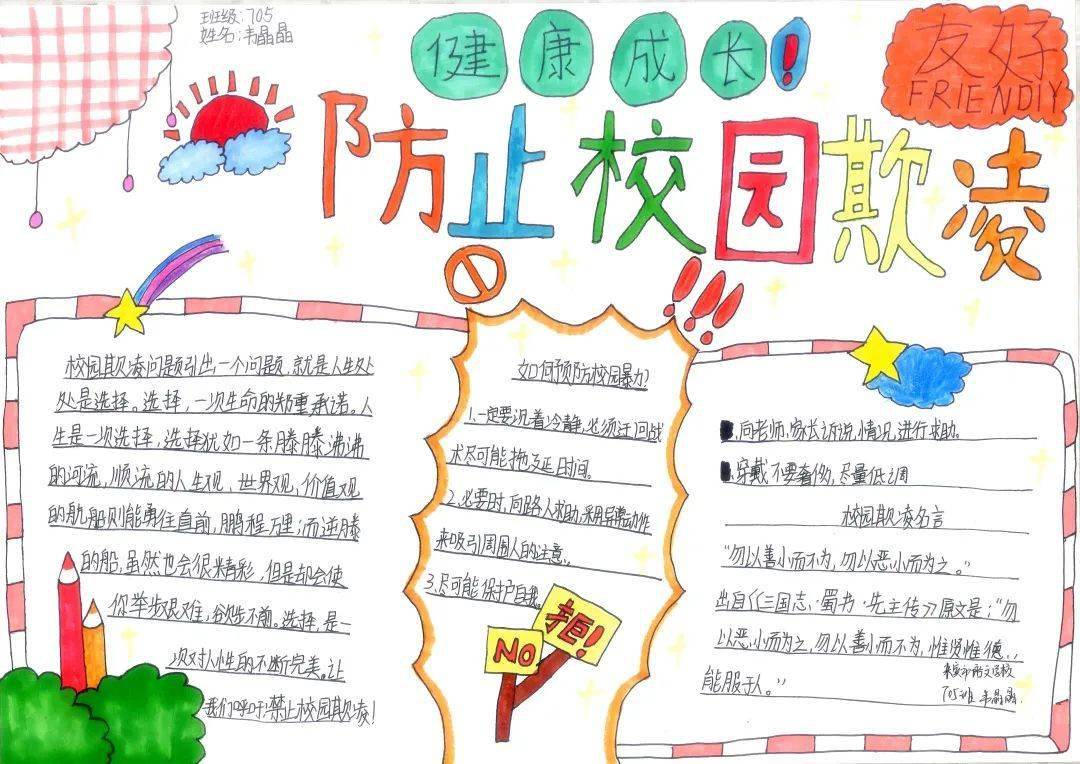 班级:705
姓名:韦晶晶
健康成长!
友好
FRIENDLY
防止校园欺凌
!!!
校园欺凌问题引出一个问题,就是人生处
处是选择。选择,一次生命的郑重承诺。人
生是一次选择,选择犹如一条滕滕沸沸
的河流,顺流的人生观、世界观,价值观
的航船则能勇往直前,鹏程万里;而逆滕
的船,虽然也会很精彩,但是却会使
你举步艰难,徘徊不前。选择,是一
次对人性的不断完美,让
我们呼吁:禁止校园欺凌!
如何预防校园暴力?
1.一定要沉着冷静,必须迂回战
术尽可能拖延时间。
2.必要时,向路人求助,采用异常动作
来吸引周围人的注意。
3.尽可能保护自我。
拒!
NO
向老师,家长诉说,情况,进行求助。
穿戴不要奢侈,尽量低调
校园欺凌名言
“勿以善小而不为,勿以恶小而为之。”
出自《三国志·蜀书·先主传》原文是;“勿
以恶小而为之,勿以善小而不为,惟贤惟德,
能服于人。”
705班 韦晶晶